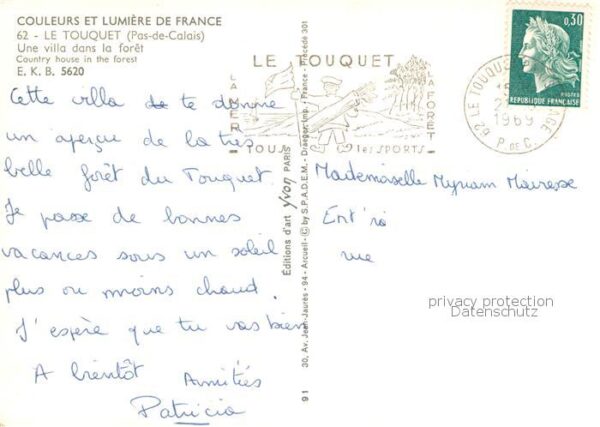 COULEURS ET LUMIÈRE DE FRANCE
62 - LE TOUQUET (Pas-de-Calais)
Une villa dans la forêt
Country house in the forest
E. K. B. 5620
Cette villa te donne
un aperçu de la très
belle forêt du Touquet.
Je passe de bonnes
vacances sous un soleil
plus ou moins chaud.
J'espère que tu vas bien
A bientôt Amitiés
Patricia
Editions d'art yvon PARIS
30, Av. Jean-Jaurès - 94 - Arcueil - © by S.P.A.D.E.M. - Draeger Imp. - France - Précédé 301
91
LE TOUQUET
LA MER
LA FORÊT
TOUS les SPORTS
62 LE TOUQUET PLAGE
1969
P. DE C.
0,30
REPUBLIQUE FRANÇAISE
Mademoiselle Myriam Mairesse
rue
privacy protection
Datenschutz